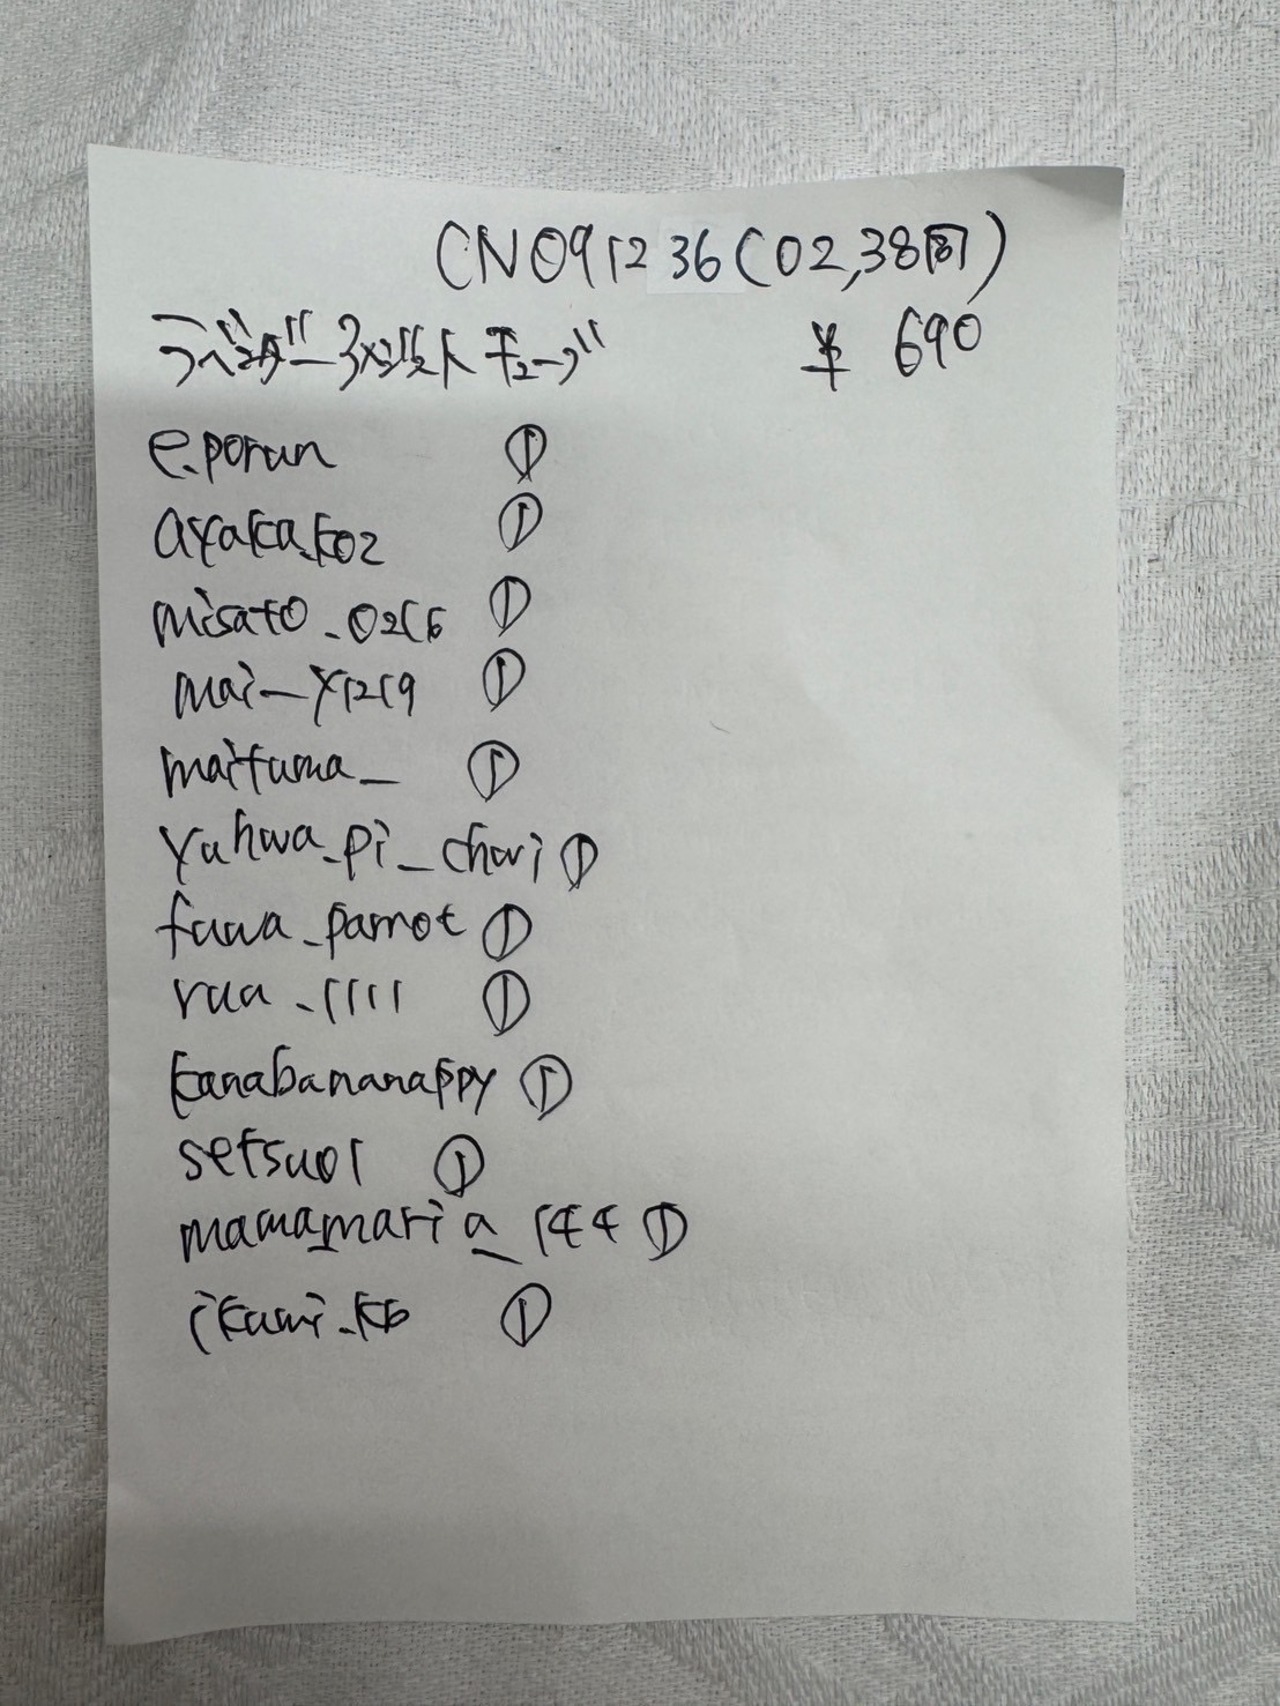 CN091236(02,38同)
ラベンダーアメジストチューブ ¥690
e.porun ①
ayaka.k02
①
misato_0216 ①
mai_y1219 ①
maituma_ ①
yuhwa_pi_chari ①
fuwa_parrot ①
ruu_1111 ①
kanabananappy ①
setsu01 ①
mamamaria_144 ①
ikumi.kb ①